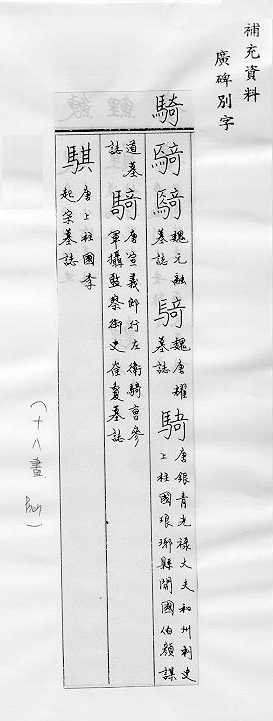 補充資料
廣碑別字
騎
騎 騎 魏元融墓誌 騎 魏唐耀墓誌 騎 唐銀青光祿大夫和州刺史上柱國琅琊縣開國伯顏謀
道墓誌 騎 唐宣義郎行左衛騎曹參軍攝監察御史崔夐墓誌
騏 唐上柱國李起宗墓誌
(十八畫)